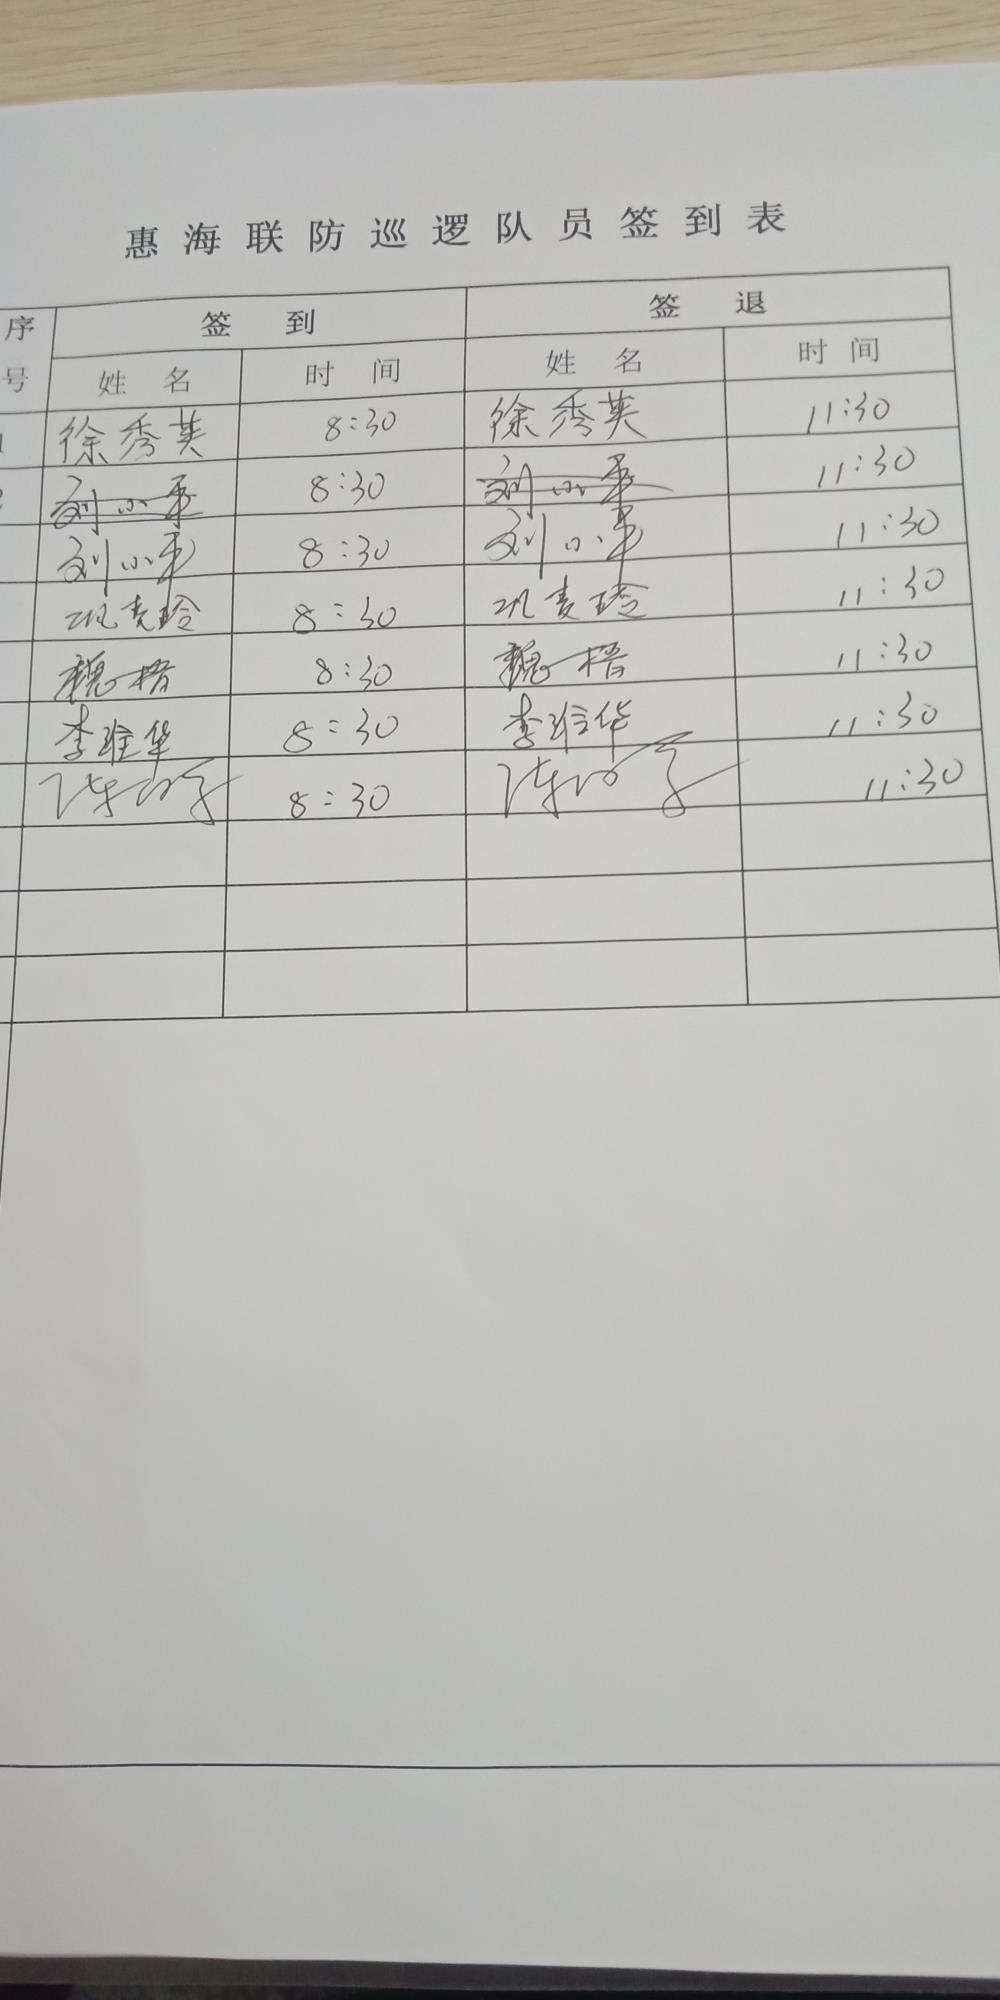 惠海联防巡逻队员签到表
序号 签到 签退
姓名 时间 姓名 时间
1 徐秀英 8:30 徐秀英 11:30
2 刘小平 8:30 刘小平 11:30
刘小平 8:30 刘小平 11:30
8:30 11:30
魏梧 8:30 魏梧 11:30
李 华 8:30 李 华 11:30
陈 8:30 陈 11:30